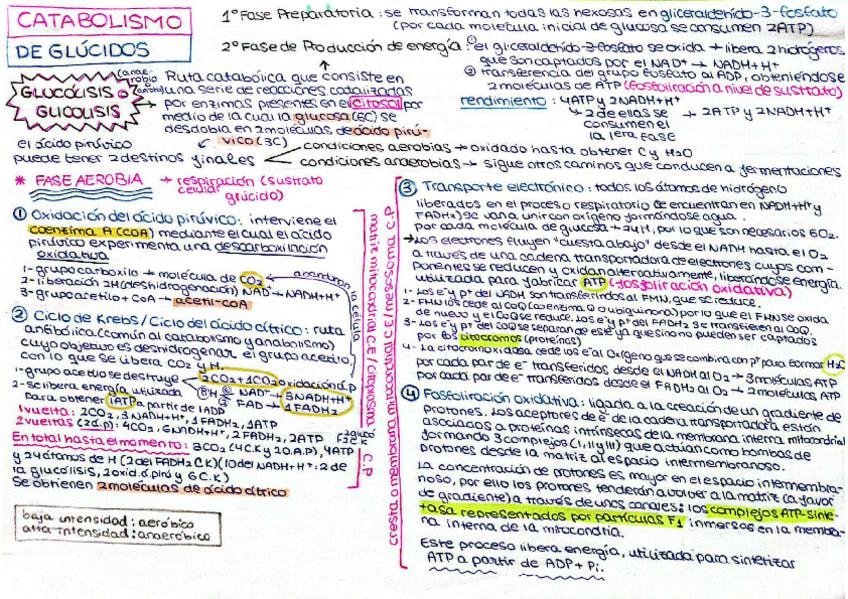 CATABOLISMO
DE GLÚCIDOS
1º Fase Preparatoria: se transforman todas las hexosas en gliceraldehído-3-fosfato
(por cada molécula inicial de glucosa se consumen 2ATP)
2º Fase de Producción de energía: ① el gliceraldehído-3-fosfato se oxida → libera 2 hidrógenos
que son captados por el NAD⁺ → NADH+H⁺
② transferencia del grupo fosfato al ADP, obteniéndose
2 moléculas de ATP (fosforilación a nivel de sustrato)
rendimiento: 4ATP y 2NADH+H⁺
→ 2 de ellas se → 2ATP y 2NADH+H⁺
consumen el
la 1era fase
GLUCÓLISIS o
GLICOLISIS
(anae-
robia o
aerobia)
Ruta catabólica que consiste en
una serie de reacciones catalizadas
por enzimas presentes en el citosol por
medio de la cual la glucosa (6C) se
desdobla en 2 moléculas de ácido pirú-
vico (3C)
el ácido pirúvico
puede tener 2 destinos finales
condiciones aerobias → oxidado hasta obtener C y H₂O
condiciones anaerobias → sigue otros caminos que conducen a fermentaciones
* FASE AEROBIA → respiración (sustrato
celular glúcido)
① Oxidación del ácido pirúvico: interviene el
coenzima A (COA) mediante el cual el ácido
pirúvico experimenta una descarboxilación
oxidativa
1- grupo carboxilo → molécula de CO₂
abandonan la célula
2- liberación 2H (deshidrogenación) NAD⁺ → NADH+H⁺
3- grupo acetilo + CoA → acetil-COA
② Ciclo de Krebs / Ciclo del ácido cítrico: ruta
anfibólica (común al catabolismo y anabolismo)
cuyo objetivo es deshidrogenar el grupo acetilo,
con lo que se libera CO₂ y H.
1- grupo acetilo se destruye 2CO₂ + 1CO₂ oxidación á.p
2- se libera energía utilizada
para obtener 1ATP a partir de 1ADP
8H NAD⁺ → 3NADH+H⁺
FAD → 1FADH₂
1 vuelta: 2CO₂, 3NADH+H⁺, 1FADH₂, 1ATP
2 vueltas (2á.p): 4CO₂, 6NADH+H⁺, 2FADH₂, 2ATP
En total hasta el momento: 6CO₂ (4C.K y 2O.A.P), 4ATP
y 24 átomos de H (2 del FADH₂ C.K) (10 del NADH+H⁺: 2 de
la glucólisis, 2 oxid. á. pirú y 6C.K)
Se obtienen 2 moléculas de ácido cítrico
baja intensidad: aeróbico
alta intensidad: anaeróbico
matriz mitocondrial C.E / citoplasma C.P
cresta o membrana mitocondrial C.E / mesosoma C.P
③ Transporte electrónico: todos los átomos de hidrógeno
liberados en el proceso respiratorio se encuentran en NADH+H⁺ y
FADH₂) se van a unir con oxígeno formándose agua.
por cada molécula de glucosa → 24H, por lo que son necesarios 6O₂.
→ los electrones fluyen "cuesta abajo" desde el NADH hasta el O₂
a través de una cadena transportadora de electrones cuyos com-
ponentes se reducen y oxidan alternativamente, liberándose energía
utilizada para fabricar ATP (fosforilación oxidativa)
1- Los e⁻ y p⁺ del NADH son transferidos al FMN, que se reduce.
2- FMN los cede al COQ (coenzima Q o ubiquinona) por lo que el FMN se oxida
de nuevo y el COQ se reduce. Los e⁻ y p⁺ del FADH₂ se transfieren al COQ.
3- Los e⁻ y p⁺ del COQ se separan de este ya que sino no pueden ser captados
por los citocromos (proteínas)
4- La citocromooxidasa cede los e⁻ al oxígeno que se combina con p⁺ para formar H₂O
por cada par de e⁻ transferidos desde el NADH al O₂ → 3 moléculas ATP
por cada par de e⁻ transferidos desde el FADH₂ al O₂ → 2 moléculas ATP
④ Fosforilación oxidativa: ligada a la creación de un gradiente de
protones. Los aceptores de e⁻ de la cadena transportadora están
asociados a proteínas intrínsecas de la membrana interna mitocondrial
formando 3 complejos (I, II y III) que actúan como bombas de
protones desde la matriz al espacio intermembranoso.
La concentración de protones es mayor en el espacio intermembra-
noso, por ello los protones tenderán a volver a la matriz (a favor
de gradiente) a través de unos canales: los complejos ATP-sinte-
tasa representados por partículas F₁ inmersos en la membra-
na interna de la mitocondria.
Este proceso libera energía, utilizada para sintetizar
ATP a partir de ADP + Pi.